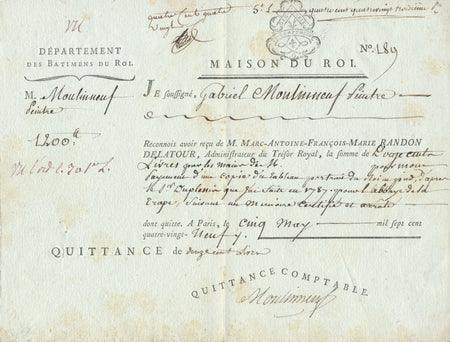 quatre Cent quatre
vingt
5 s. quatre cent quatre vingt treizieme
M
DÉPARTEMENT
DES BATIMENS DU ROI.
N.º 189
MAISON DU ROI.
M. Moulinneuf
Peintre
JE soussigné, Gabriel Moulinneuf Peintre
1200.tt
Reconnois avoir reçu de M. MARC-ANTOINE-FRANÇOIS-MARIE RANDON
DELATOUR, Administrateur du Trésor Royal, la somme de
Livres par les mains de M. pour mon
payement d'une copie du tableau portrait du Roi en pied, d'apres
le S.r que j'ai faite en 1787. pour l'abbaye de la
Trape, suivant un Mémoire certifié et arrêté
dont quitte. A Paris, le Cinq May mil sept cent
quatre-vingt-Neuf.
QUITTANCE de douze cent Livres
QUITTANCE COMPTABLE.
Moulinneuf